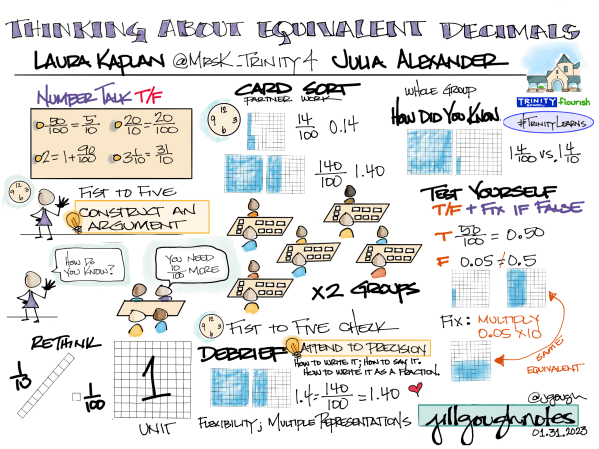 THINKING ABOUT EQUIVALENT DECIMALS
LAURA KAPLAN @MRSK_TRINITY4 JULIA ALEXANDER
NUMBER TALK T/F
50/100 = 5/10
20/10 = 20/100
2 = 1 + 90/100
3 1/10 = 31/10
FIST TO FIVE
CONSTRUCT AN
ARGUMENT
HOW DO
YOU KNOW?
YOU NEED
10/100 MORE
RETHINK
1/10
1/100
1
UNIT
CARD SORT
PARTNER WORK
12
3
6
9
14/100 0.14
140/100 1.40
X2 GROUPS
FIST TO FIVE CHECK
DEBRIEF
ATTEND TO PRECISION
HOW TO WRITE IT; HOW TO SAY IT.
HOW TO WRITE IT AS A FRACTION.
1.4 = 140/100 = 1.40
FLEXIBILITY; MULTIPLE REPRESENTATIONS
WHOLE GROUP
HOW DID YOU KNOW
TRINITY
SCHOOL
flourish
#TRINITYLEARNS
1 4/100 VS. 1 4/10
TEST YOURSELF
T/F + FIX IF FALSE
T 50/100 = 0.50
F 0.05 ≠ 0.5
FIX: MULTIPLY
0.05 X 10
SAME
EQUIVALENT
@jgough
jillgoughnotes
01.31.2023